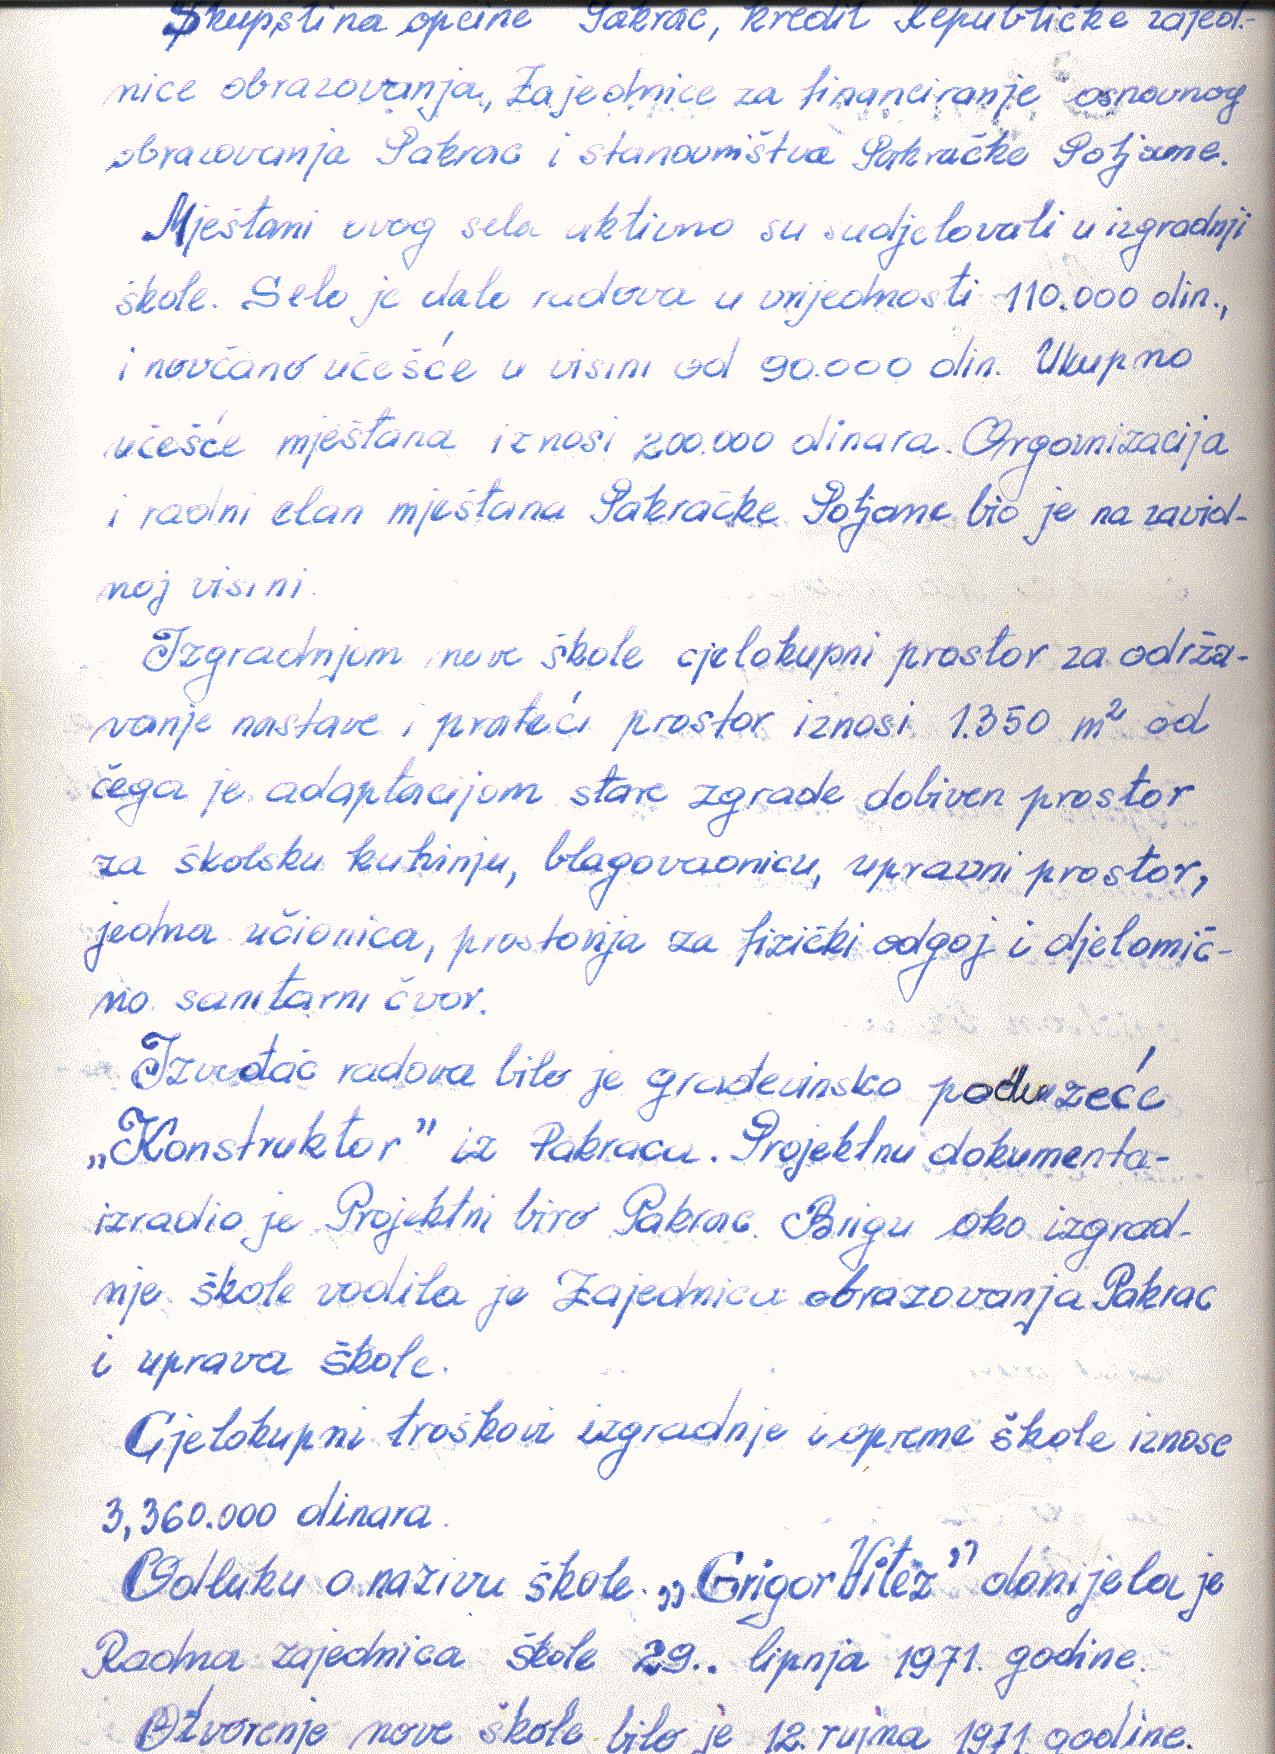 Skupština općine Pakrac, kredit Republičke zajed-
nice obrazovanja, Zajednice za financiranje osnovnog
obrazovanja Pakrac i stanovništva Pakračke Poljane.
Mještani ovog sela aktivno su sudjelovali u izgradnji
škole. Selo je dalo radova u vrijednosti 110.000 din.,
i novčano učešće u visini od 90.000 din. Ukupno
učešće mještana iznosi 200.000 dinara. Organizacija
i radni elan mještana Pakračke Poljane bio je na zavid-
noj visini.
Izgradnjom nove škole cjelokupni prostor za održa-
vanje nastave i prateći prostor iznosi 1.350 m² od
čega je adaptacijom stare zgrade dobiven prostor
za školsku kuhinju, blagovaonicu, upravni prostor,
jedna učionica, prostorija za fizički odgoj i djelomič-
no sanitarni čvor.
Izvođač radova bilo je građevinsko poduzeće
„Konstruktor" iz Pakraca. Projektnu dokumenta-
izradio je Projektni biro Pakrac. Brigu oko izgrad-
nje škole vodila je Zajednica obrazovanja Pakrac
i uprava škole.
Cjelokupni troškovi izgradnje i opreme škole iznose
3,360.000 dinara.
Odluku o nazivu škole „Grigor Vitez" donijela je
Radna zajednica škole 29.. lipnja 1971. godine.
Otvorenje nove škole bilo je 12. rujna 1971 godine.